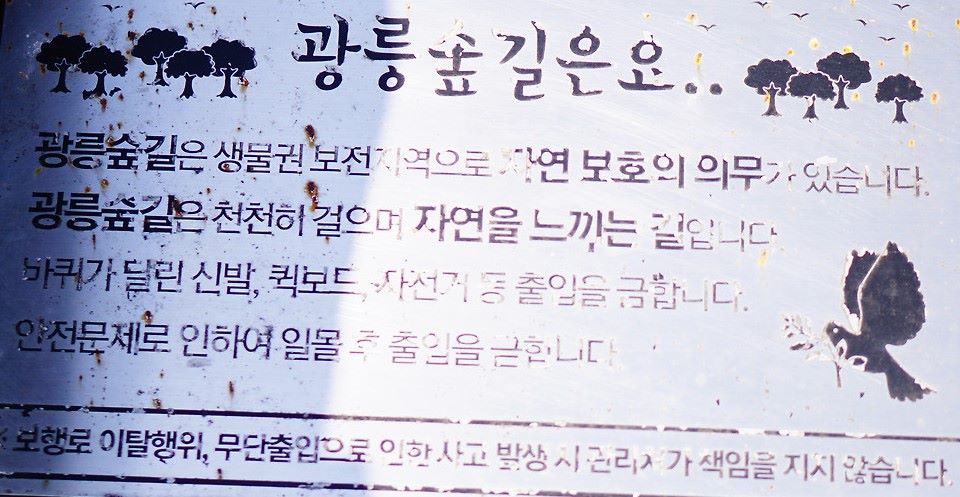 광릉숲길은요..
광릉숲길은 생물권 보전지역으로 자연 보호의 의무가 있습니다.
광릉숲길은 천천히 걸으며 자연을 느끼는 길입니다.
바퀴가 달린 신발, 퀵보드, 자전거 등 출입을 금합니다.
안전문제로 인하여 일몰 후 출입을 금합니다.
※ 보행로 이탈행위, 무단출입으로 인한 사고 발생 시 관리자가 책임을 지지 않습니다.